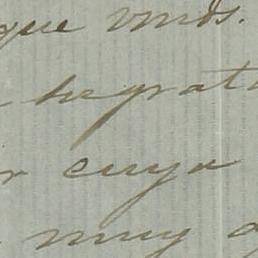 que vmds.
se grat
cuya
muy